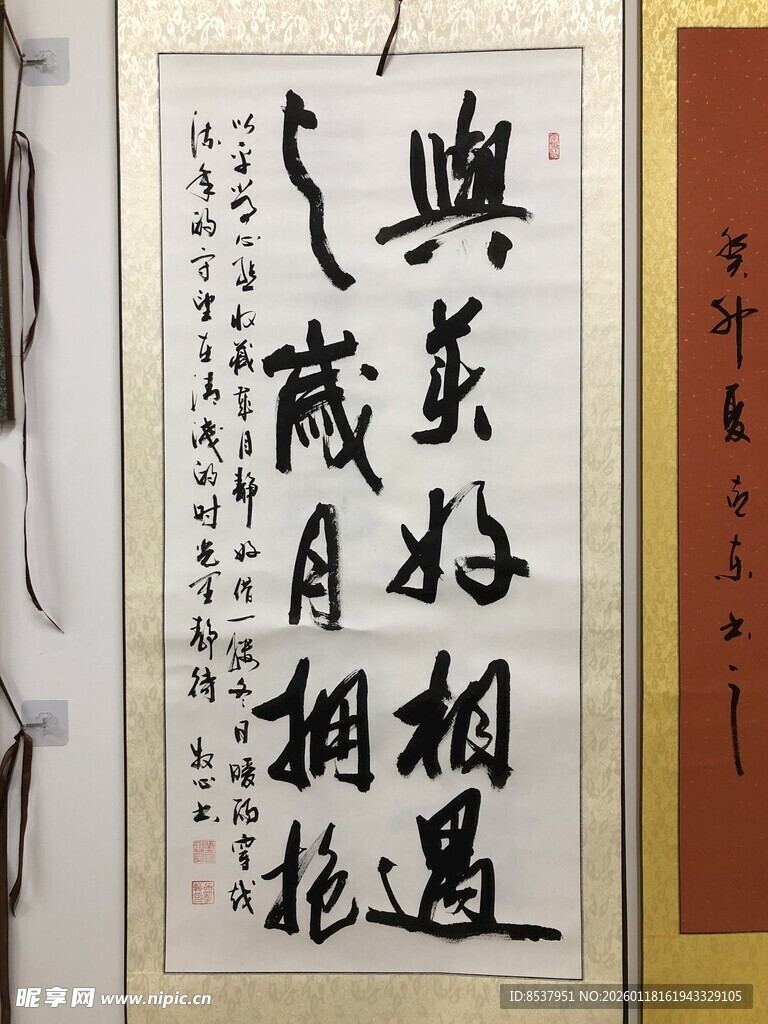 與美好相遇
与歲月拥抱
以平常心态收藏岁月静好借一缕冬日暖阳穿越
流年的守望在清浅的时光里静待
牧心书
癸卯夏志东书之
昵享网 www.nipic.cn
ID:8537951 NO:20260118161943329105